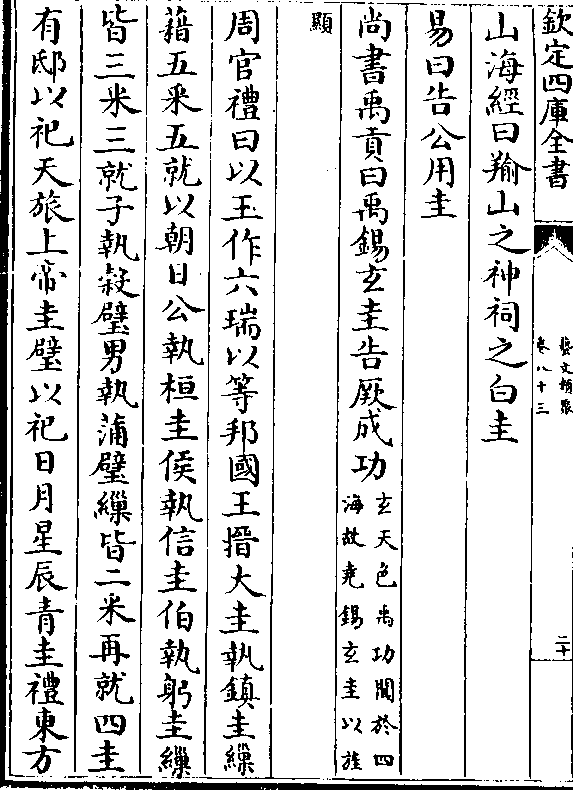 欽定四庫全書
藝文類聚
卷八十三
二十
山海經曰羭山之神祠之白圭
易曰告公用圭
尚書禹貢曰禹錫玄圭告厥成功
玄天色禹功聞於四
海故堯錫玄圭以旌
顯
周官禮曰以玉作六瑞以等邦國王搢大圭執鎮圭繅
藉五采五就以朝日公執桓圭侯執信圭伯執躬圭繅
皆三米三就子執穀璧男執蒲璧繅皆二米再就四圭
有邸以祀天旅上帝圭璧以祀日月星辰青圭禮東方